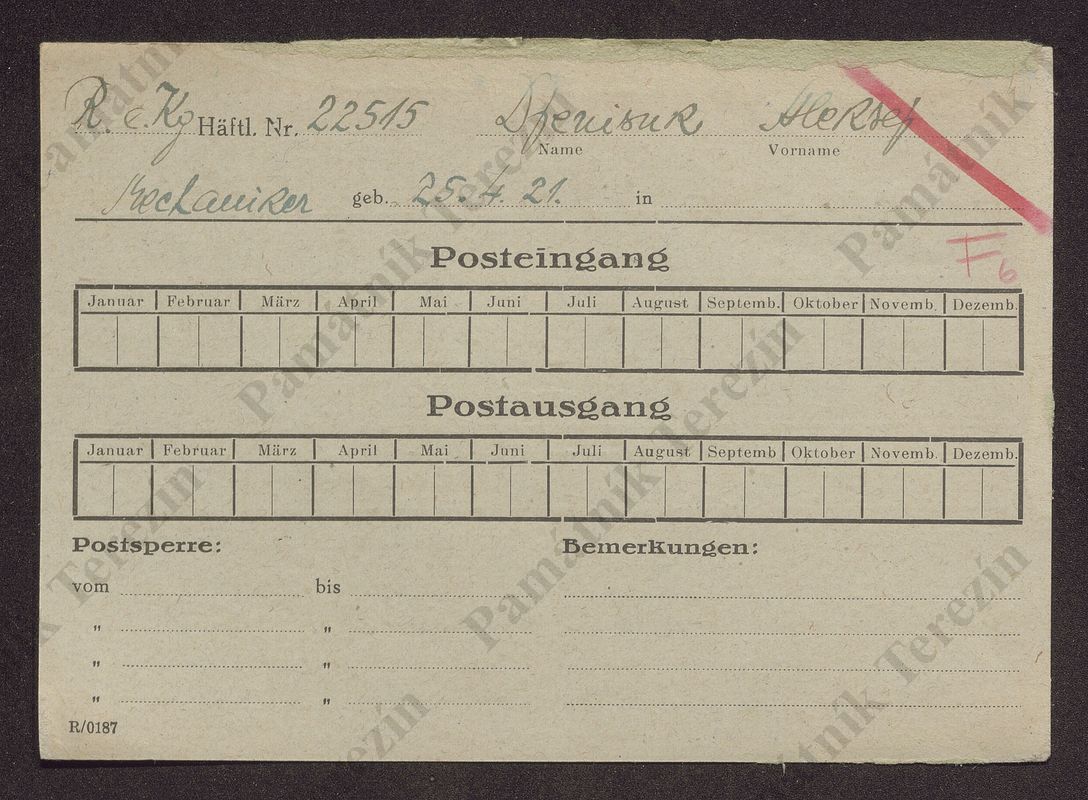 R. Kg Häftl. Nr. 22515 Djenisuk Aleksej
Name Vorname
Mechaniker geb. 25. 4. 21. in
F6
Posteingang
Januar Februar März April Mai Juni Juli August Septemb. Oktober Novemb. Dezemb.
Postausgang
Januar Februar März April Mai Juni Juli August Septemb Oktober Novemb. Dezemb.
Postsperre: Bemerkungen:
vom bis
" "
" "
" "
R/0187
Památník Terezín